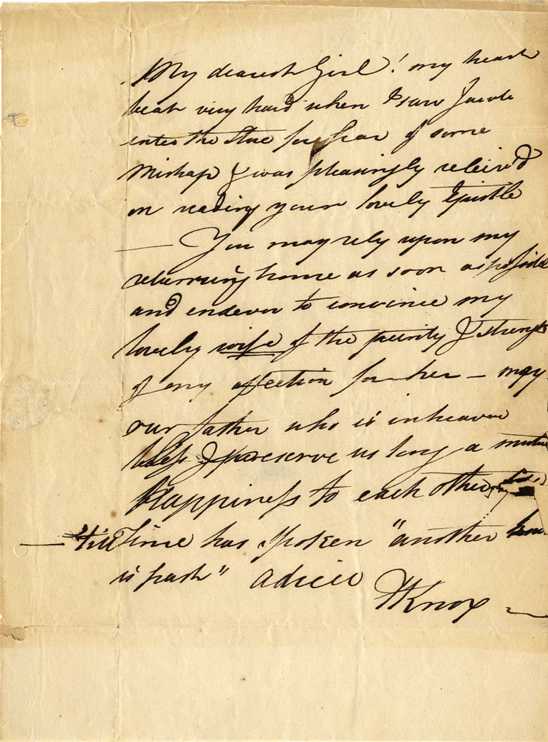 My dearest Girl! my heart
beat very hard when I saw Jacob
enter the Stoe for fear of some
mishap & was pleasingly releiv'd
on reading your lovely Epistle
— You may rely upon my
returning home as soon as possible
and endevor to convince my
lovely wife of the purity & strength
of my affection for her — may
our father who is in heaven
bless & preserve us long a mutual
Happiness to each other
— 'till Time has spoken "another
is past" adieu
HKnox